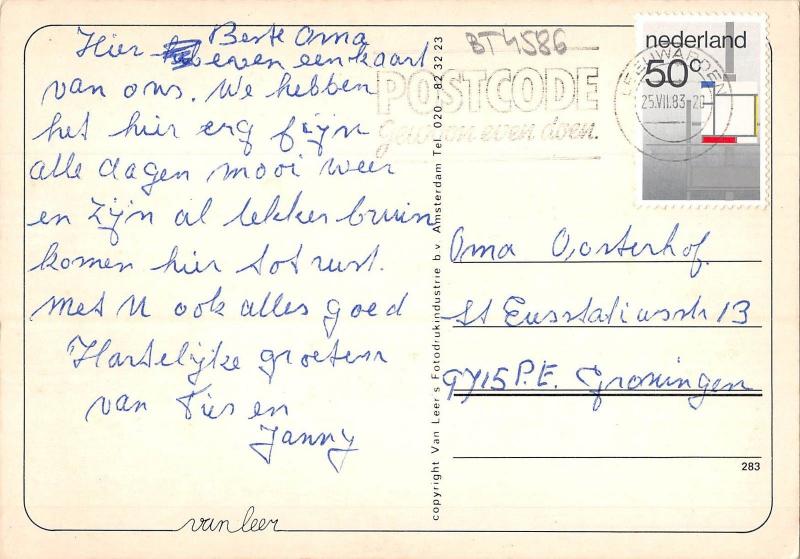 Beste Oma
Hier even een kaart
van ons. We hebben
het hier erg fijn
alle dagen mooi weer
en zijn al lekker bruin
komen hier tot rust.
Met U ook alles goed
Hartelijke groeten
van Ties en
Janny
BT4586
POSTCODE
gewoon even doen.
LEEUWARDEN
25.VII.83-20
nederland
50c
Oma Oosterhof.
St Eusstatiusstr 13
9715 P.E. Groningen
283
copyright Van Leer's Fotodrukindustrie b.v. Amsterdam Tel. 020 - 82 32 23
van leer